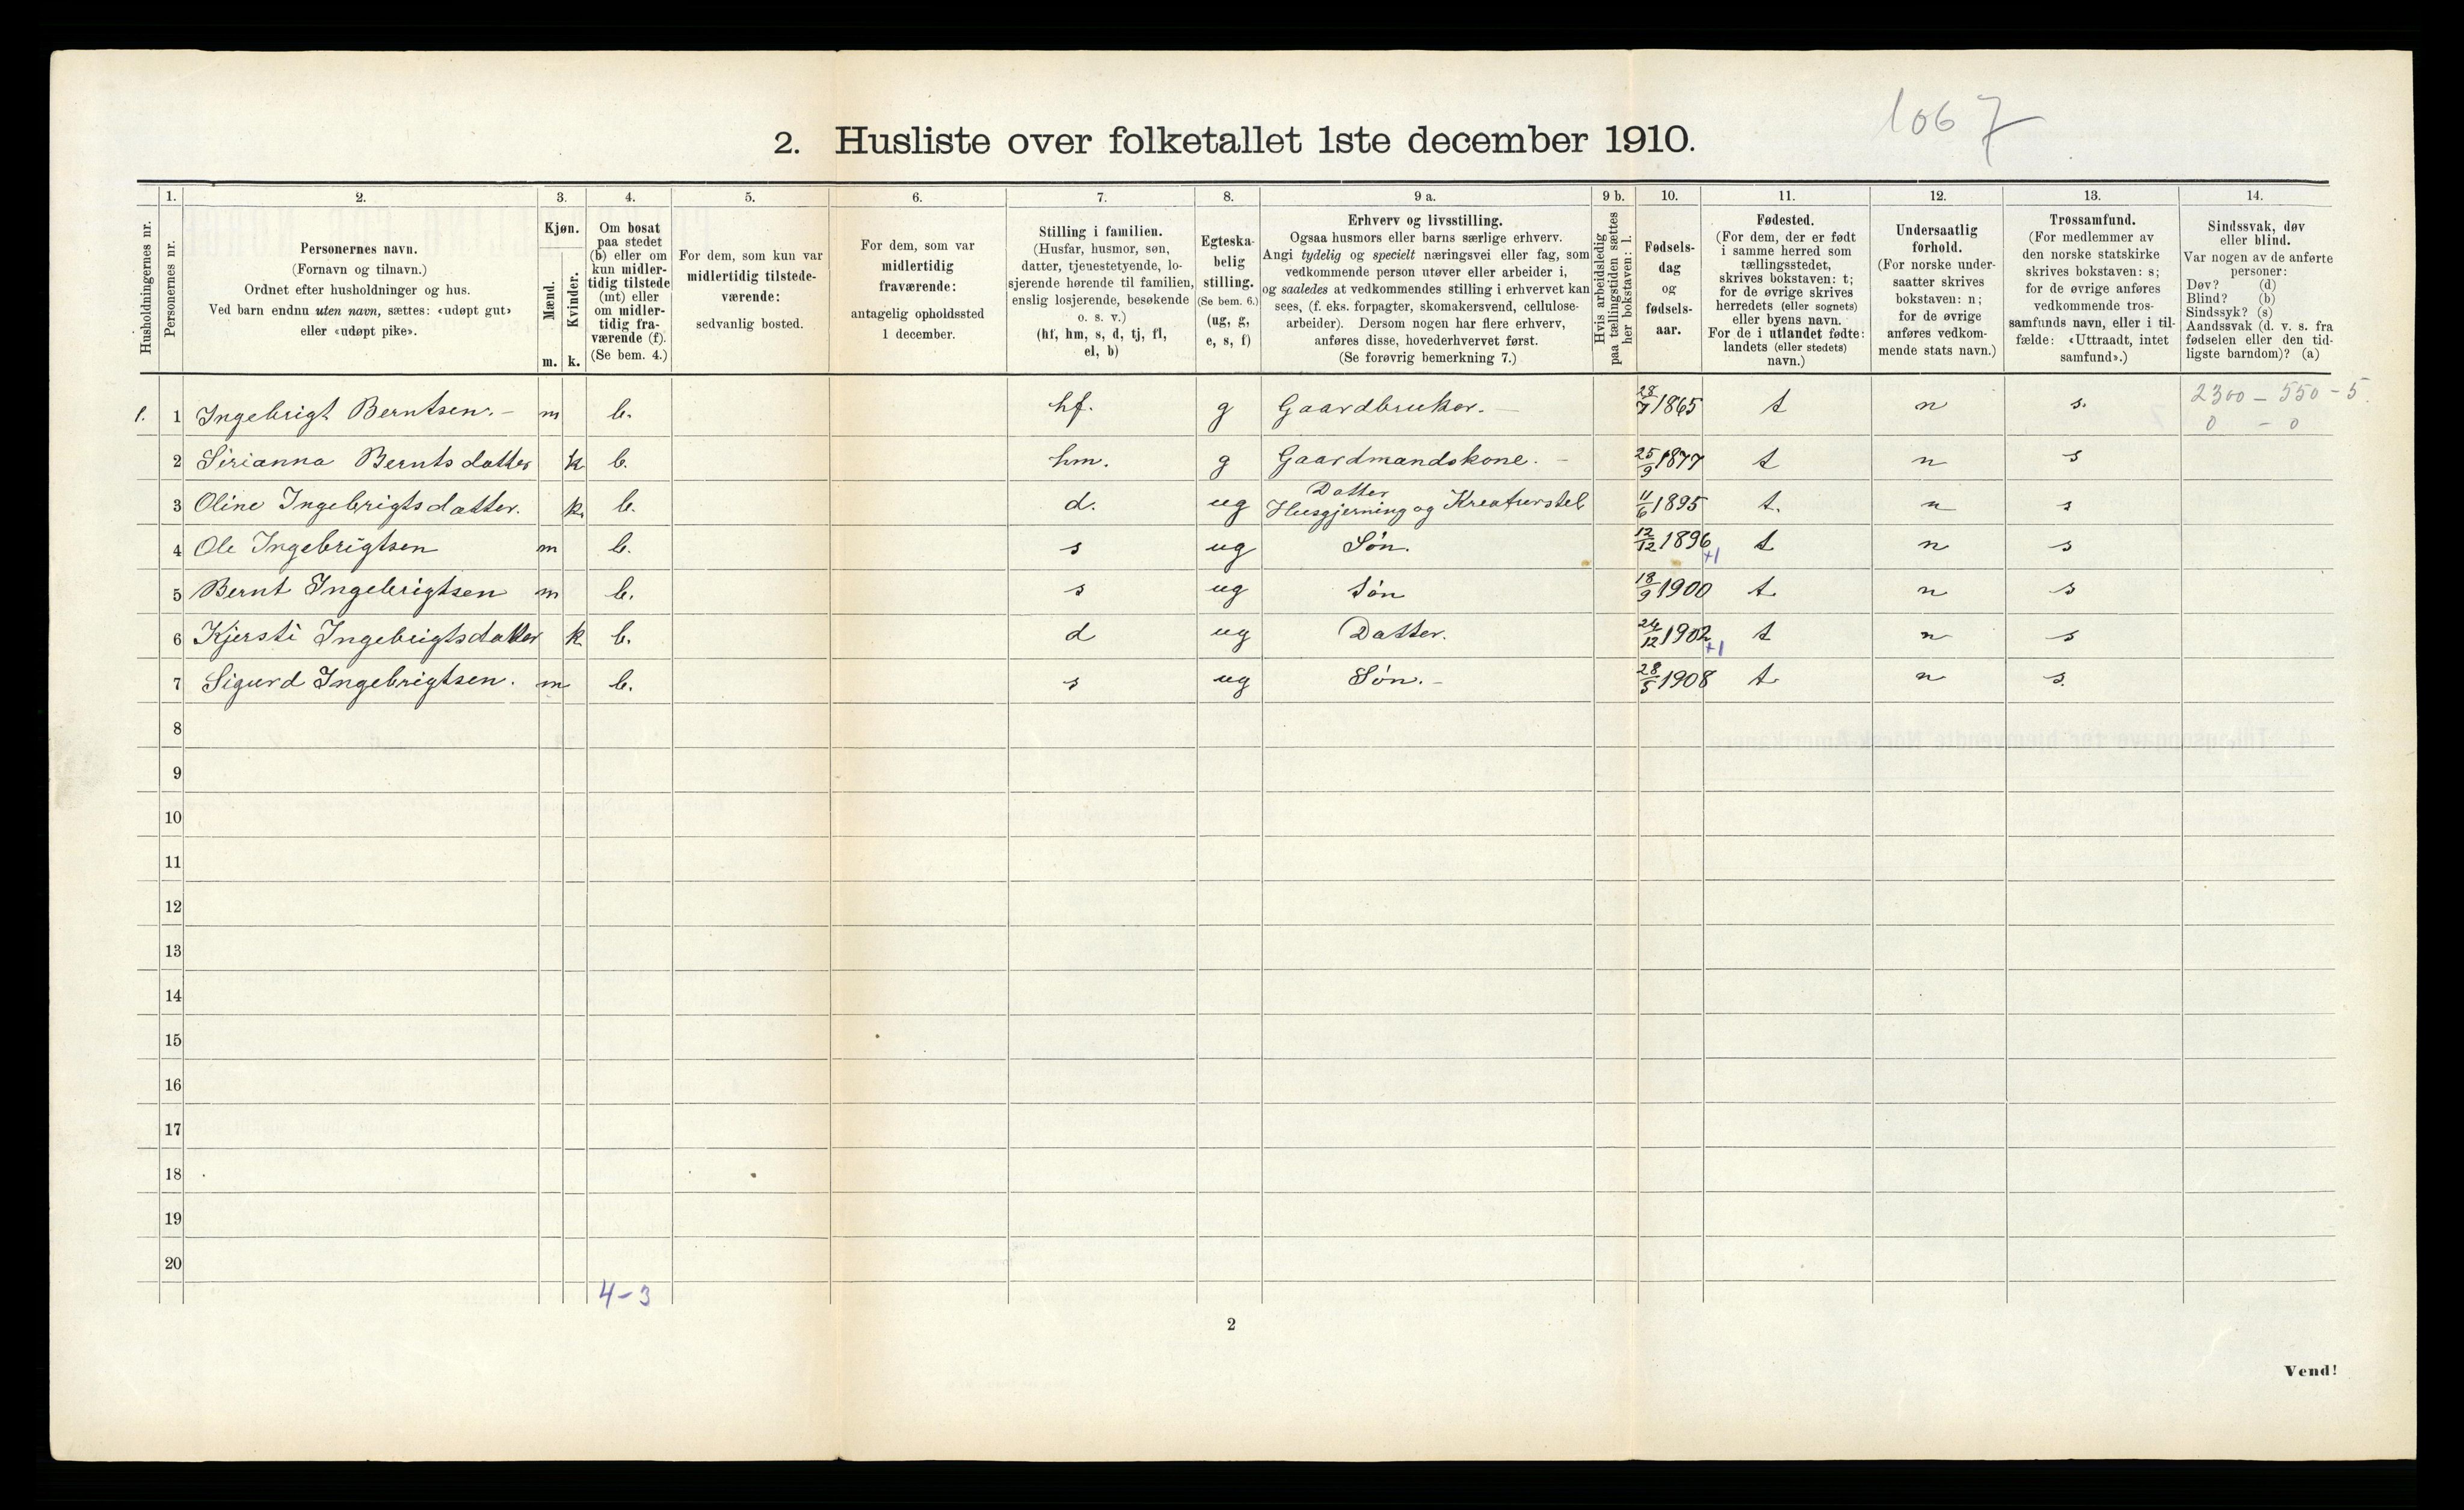 1067
2. Husliste over folketallet 1ste december 1910.
1. 2. 3. 4. 5. 6. 7. 8. 9 a. 9 b. 10. 11. 12. 13. 14.
Husholdningernes nr.
Personernes nr.
Personernes navn.
(Fornavn og tilnavn.)
Ordnet efter husholdninger og hus.
Ved barn endnu uten navn, sættes: «udøpt gut»
eller «udøpt pike».
Kjøn.
Mænd.
Kvinder.
m. k.
Om bosat
paa stedet
(b) eller om
kun midler-
tidig tilstede
(mt) eller
om midler-
tidig fra-
værende (f).
(Se bem. 4.)
For dem, som kun var
midlertidig tilstede-
værende:
sedvanlig bosted.
For dem, som var
midlertidig
fraværende:
antagelig opholdssted
1 december.
Stilling i familien.
(Husfar, husmor, søn,
datter, tjenestetyende, lo-
sjerende hørende til familien,
enslig losjerende, besøkende
o. s. v.)
(hf, hm, s, d, tj, fl,
el, b)
Egteska-
belig
stilling.
(Se bem. 6.)
(ug, g,
e, s, f)
Erhverv og livsstilling.
Ogsaa husmors eller barns særlige erhverv.
Angi tydelig og specielt næringsvei eller fag, som
vedkommende person utøver eller arbeider i,
og saaledes at vedkommendes stilling i erhvervet kan
sees, (f. eks. forpagter, skomakersvend, cellulose-
arbeider). Dersom nogen har flere erhverv,
anføres disse, hovederhvervet først.
(Se forøvrig bemerkning 7.)
Hvis arbeidsledig
paa tællingstiden sættes
her bokstaven: l.
Fødsels-
dag
og
fødsels-
aar.
Fødested.
(For dem, der er født
i samme herred som
tællingsstedet,
skrives bokstaven: t;
for de øvrige skrives
herredets (eller sognets)
eller byens navn.
For de i utlandet fødte:
landets (eller stedets)
navn.)
Undersaatlig
forhold.
(For norske under-
saatter skrives
bokstaven: n;
for de øvrige
anføres vedkom-
mende stats navn.)
Trossamfund.
(For medlemmer av
den norske statskirke
skrives bokstaven: s;
for de øvrige anføres
vedkommende tros-
samfunds navn, eller i til-
fælde: «Uttraadt, intet
samfund».)
Sindssvak, døv
eller blind.
Var nogen av de anførte
personer:
Døv? (d)
Blind? (b)
Sindssyk? (s)
Aandssvak (d. v. s. fra
fødselen eller den tid-
ligste barndom)? (a)
1. 1 Ingebrigt Berntsen. - m b. hf. g Gaardbruker. - 28/7 1865 t n s. 2300 - 550 - 5.
0 - 0
2 Sirianna Berntsdatter k b. hm. g Gaardmandskone. - 25/9 1877 t n s
3 Oline Ingebrigtsdatter. k. b. d. ug Datter Husgjerning og Kreaturstel 11/6 1895 t. n s
4 Ole Ingebrigtsen m b. s ug Søn. 12/12 1896 +1 t n s
5 Bernt Ingebrigtsen m b. s ug Søn 18/9 1900 t. n s
6 Kjersti Ingebrigtsdatter k b. d ug Datter. 24/12 1902 +1 t n s
7 Sigurd Ingebrigtsen. m b. s ug Søn. - 28/5 1908 t. n s.
8
9
10
11
12
13
14
15
16
17
18
19
20
4-3
2
Vend!